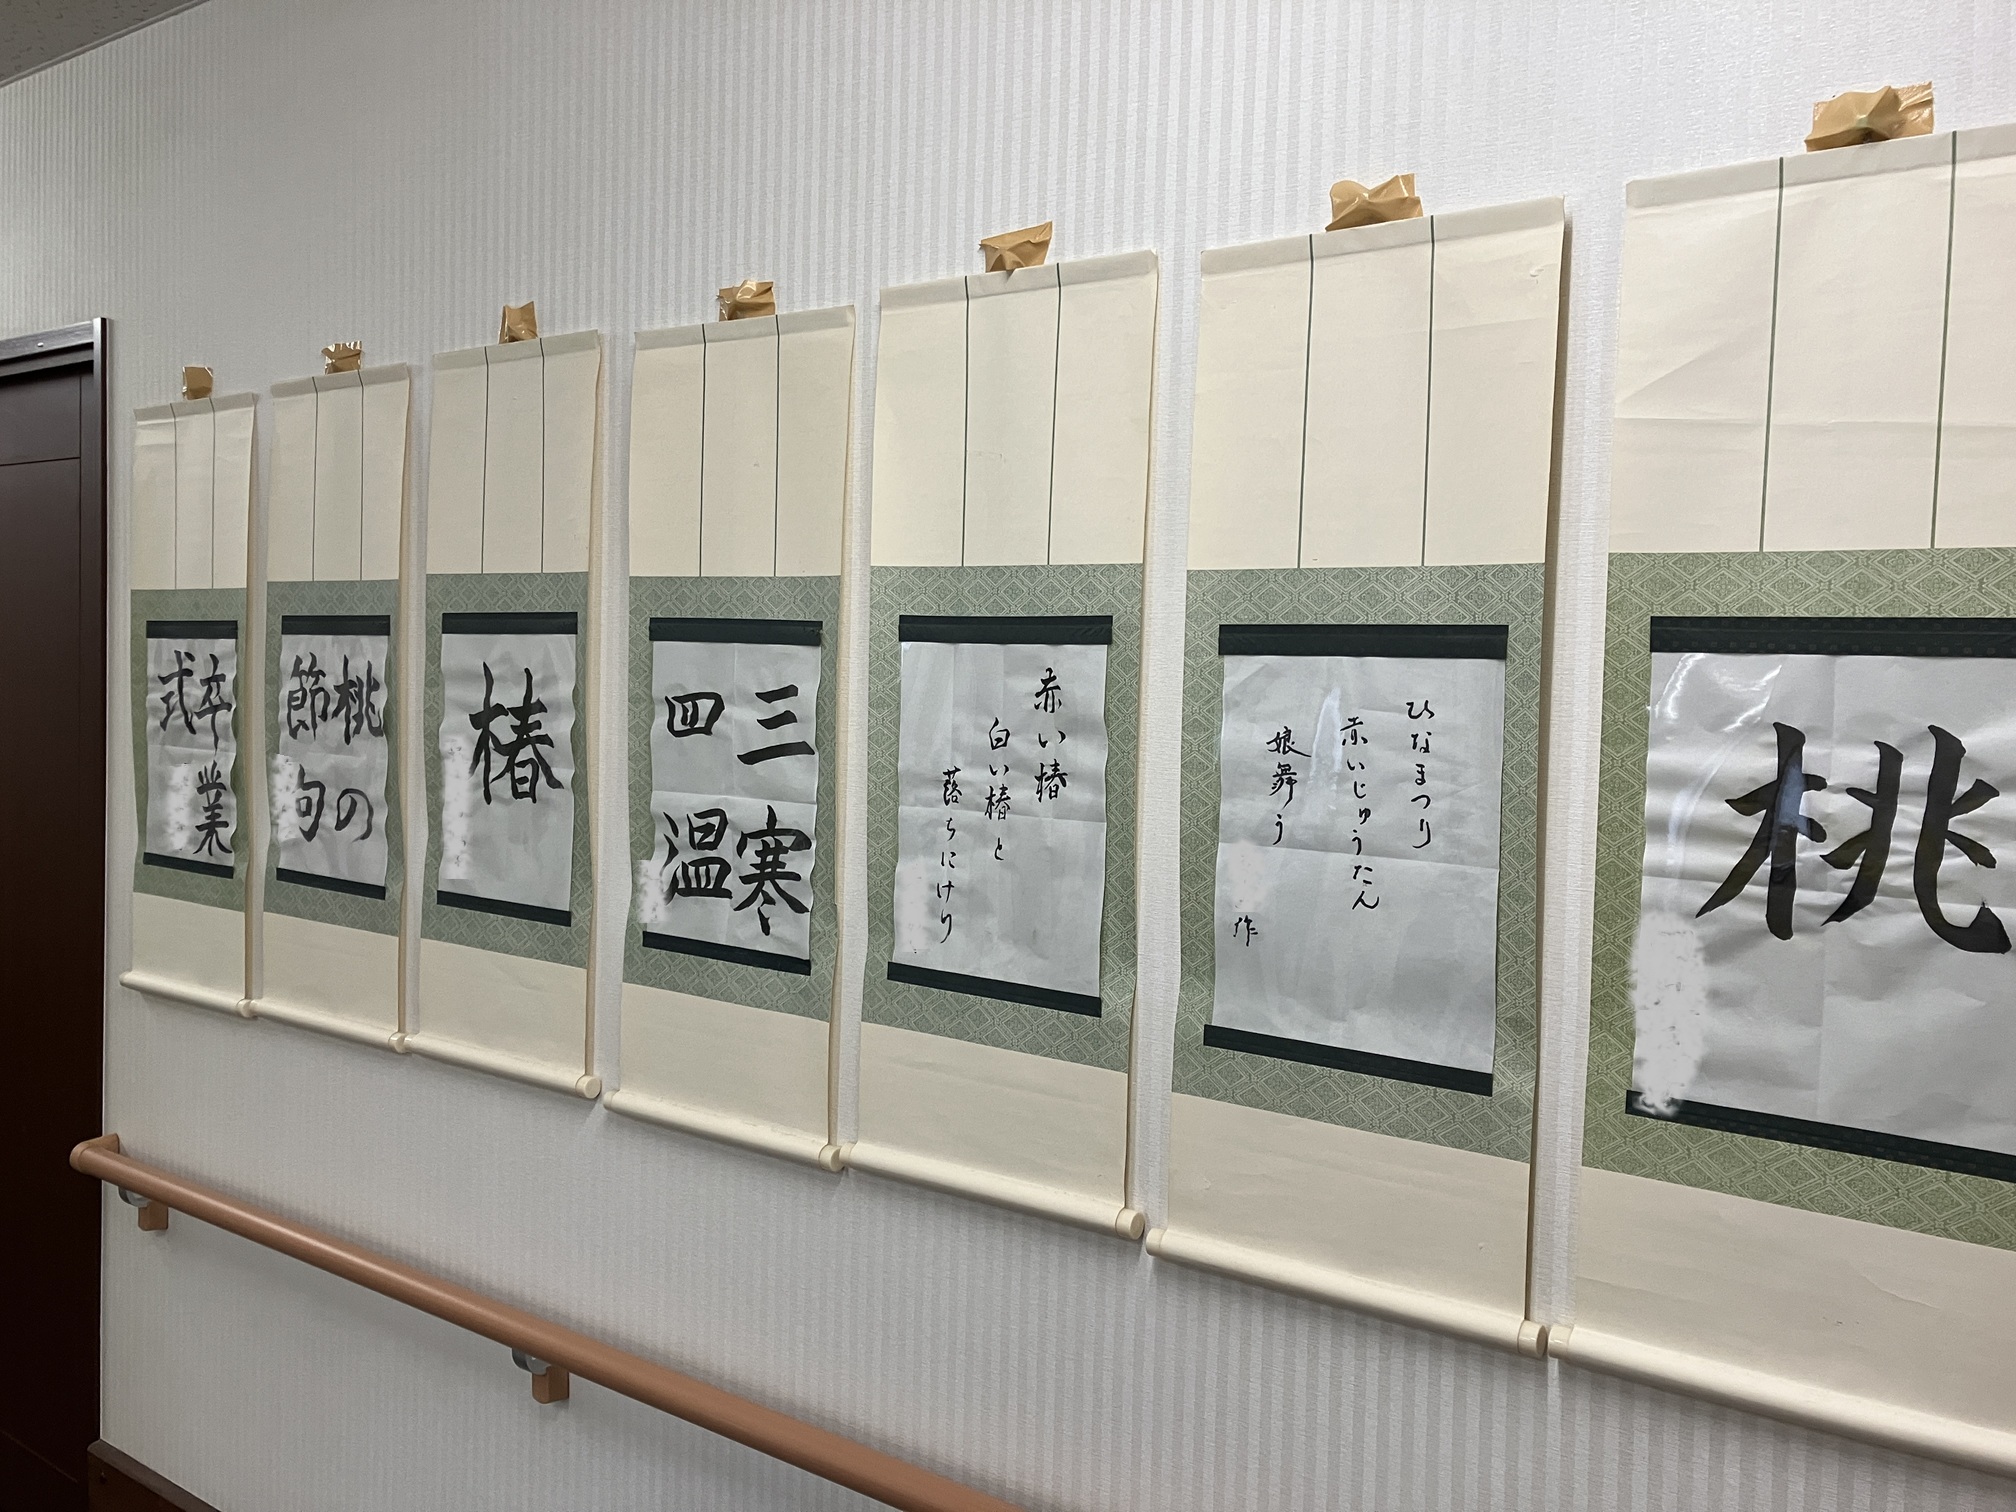 桃
ひなまつり
赤いじゅうたん
娘舞う
作
赤い椿
白い椿と
落ちにけり
三寒
四温
椿
桃の
節句
卒業
式